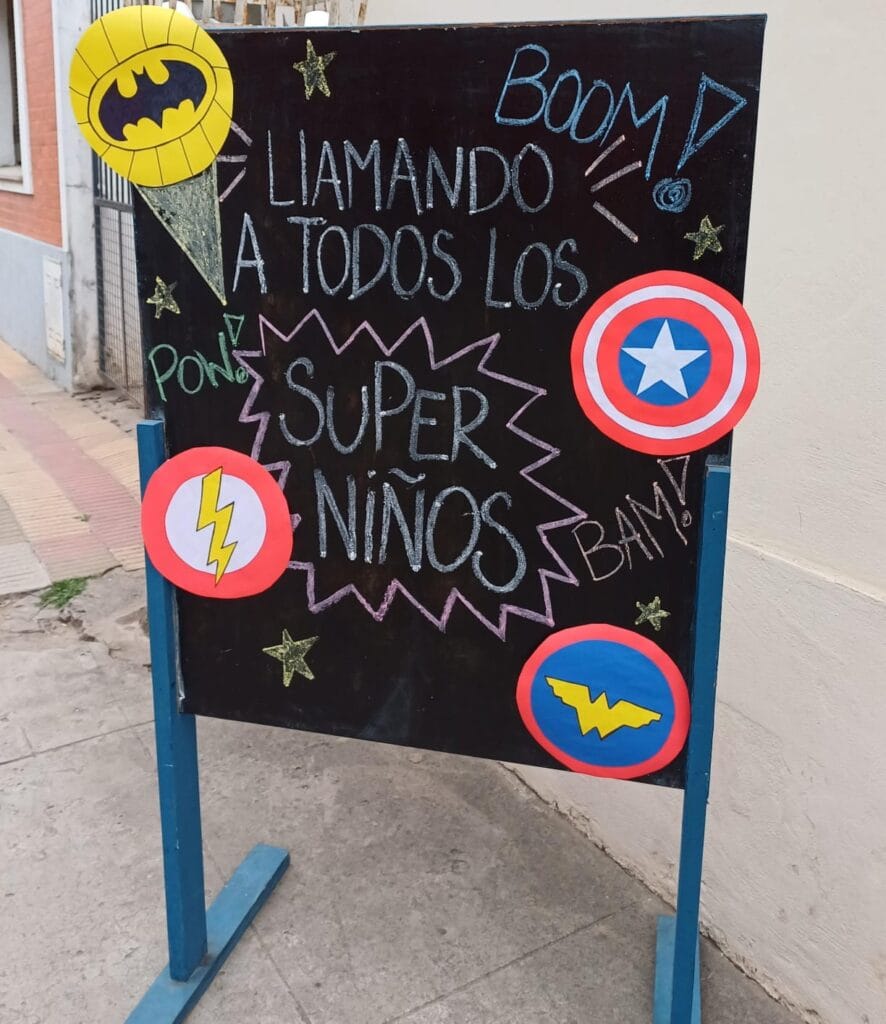 BOOM!
LLAMANDO
A TODOS LOS
POW!
SUPER
NIÑOS
BAM!